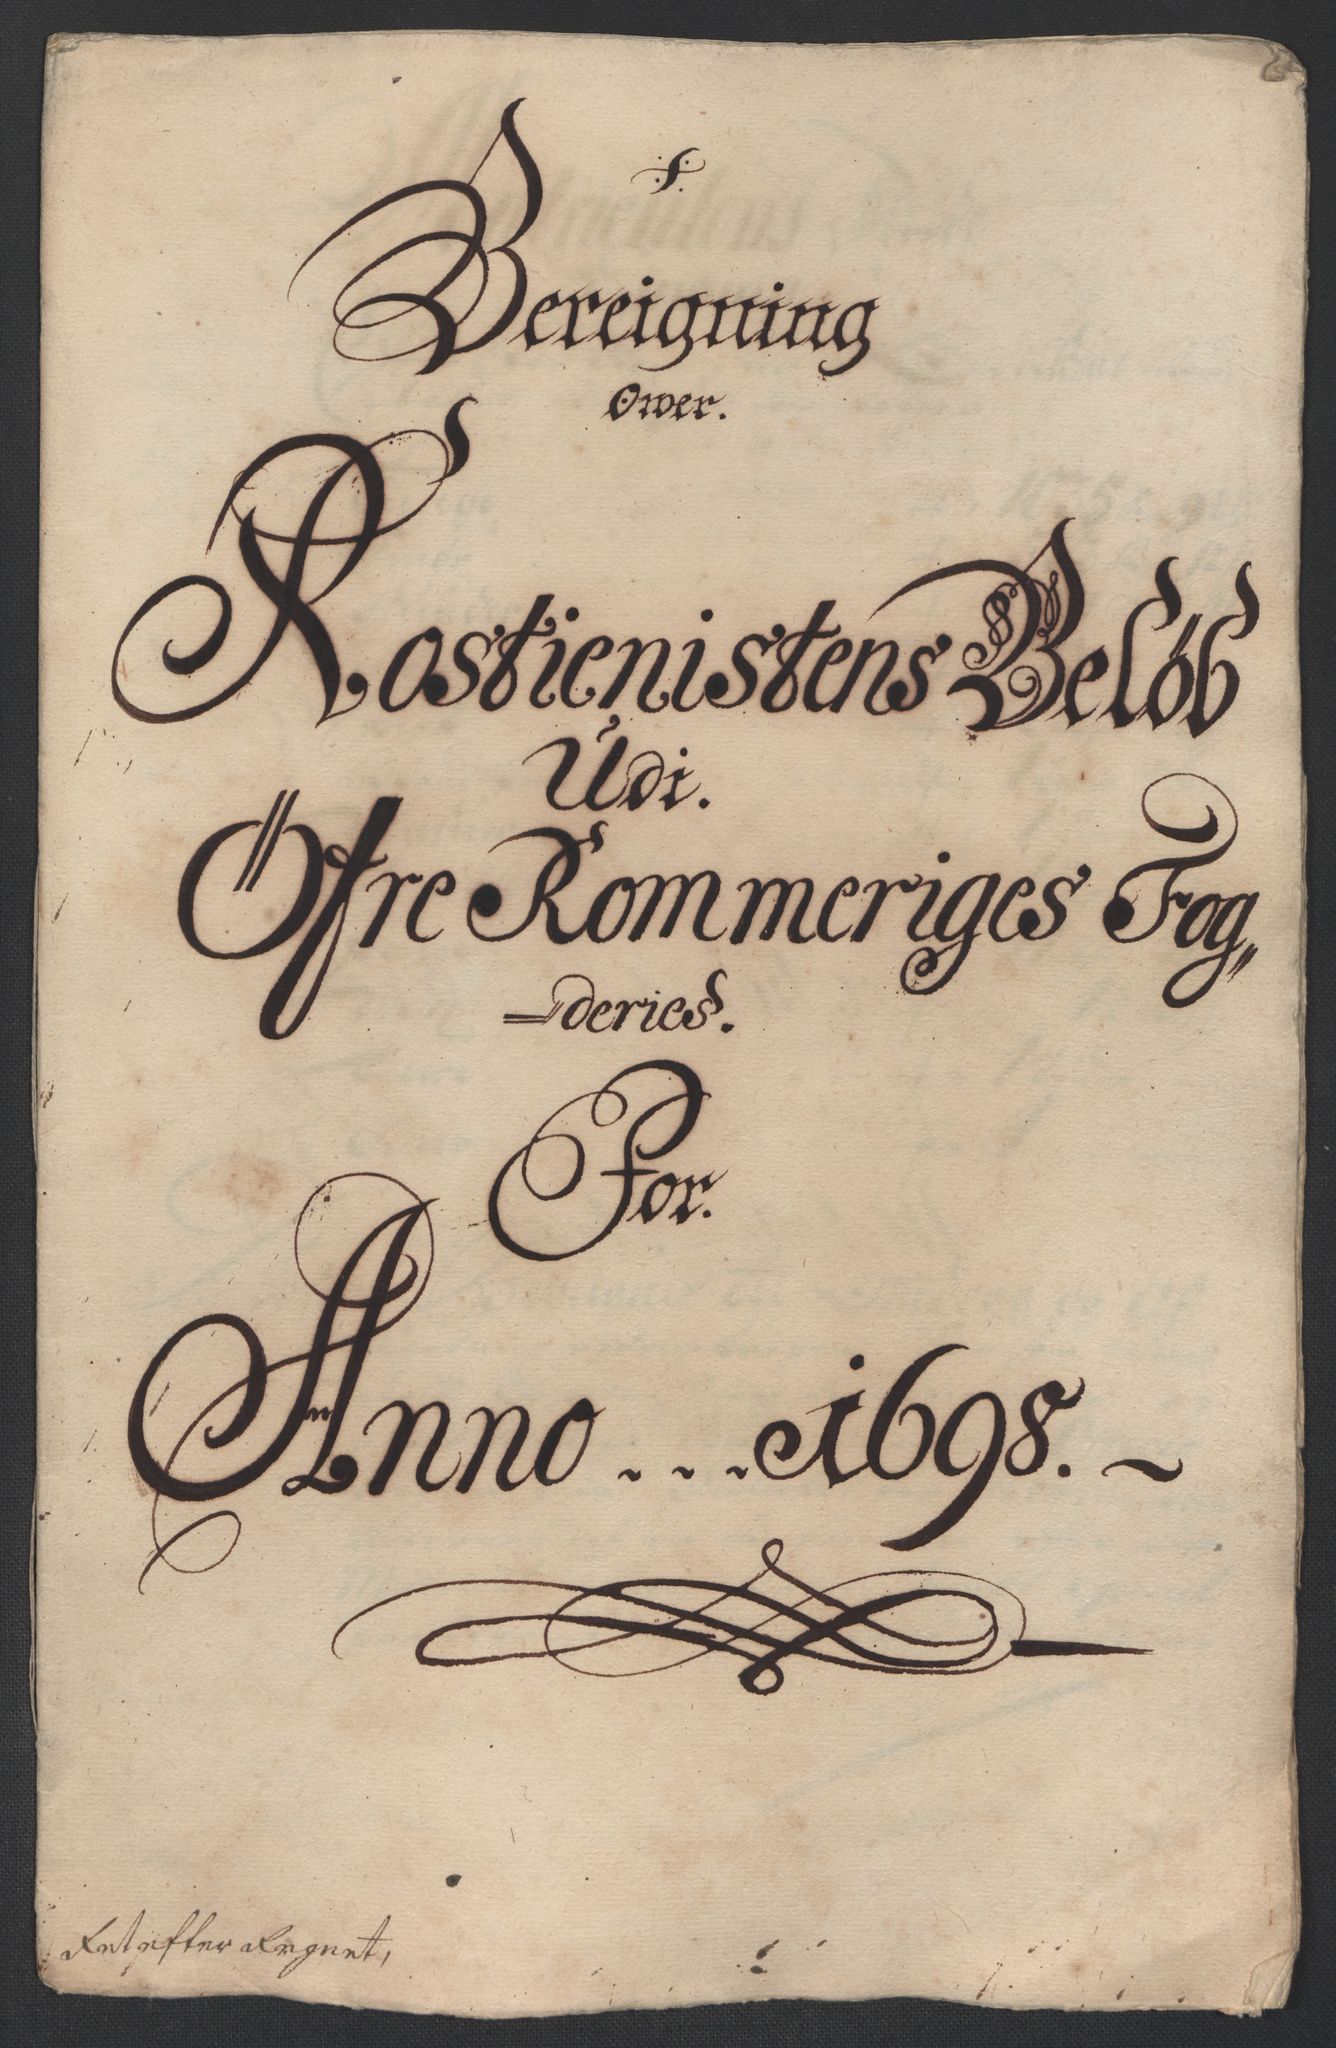 Bereigning
Ower.
Rostienistens Beløb
Udi.
Öfre Rommeriges Fog„
=deries.
For.
Anno ... 1698. ~
Ret efter Regnet,